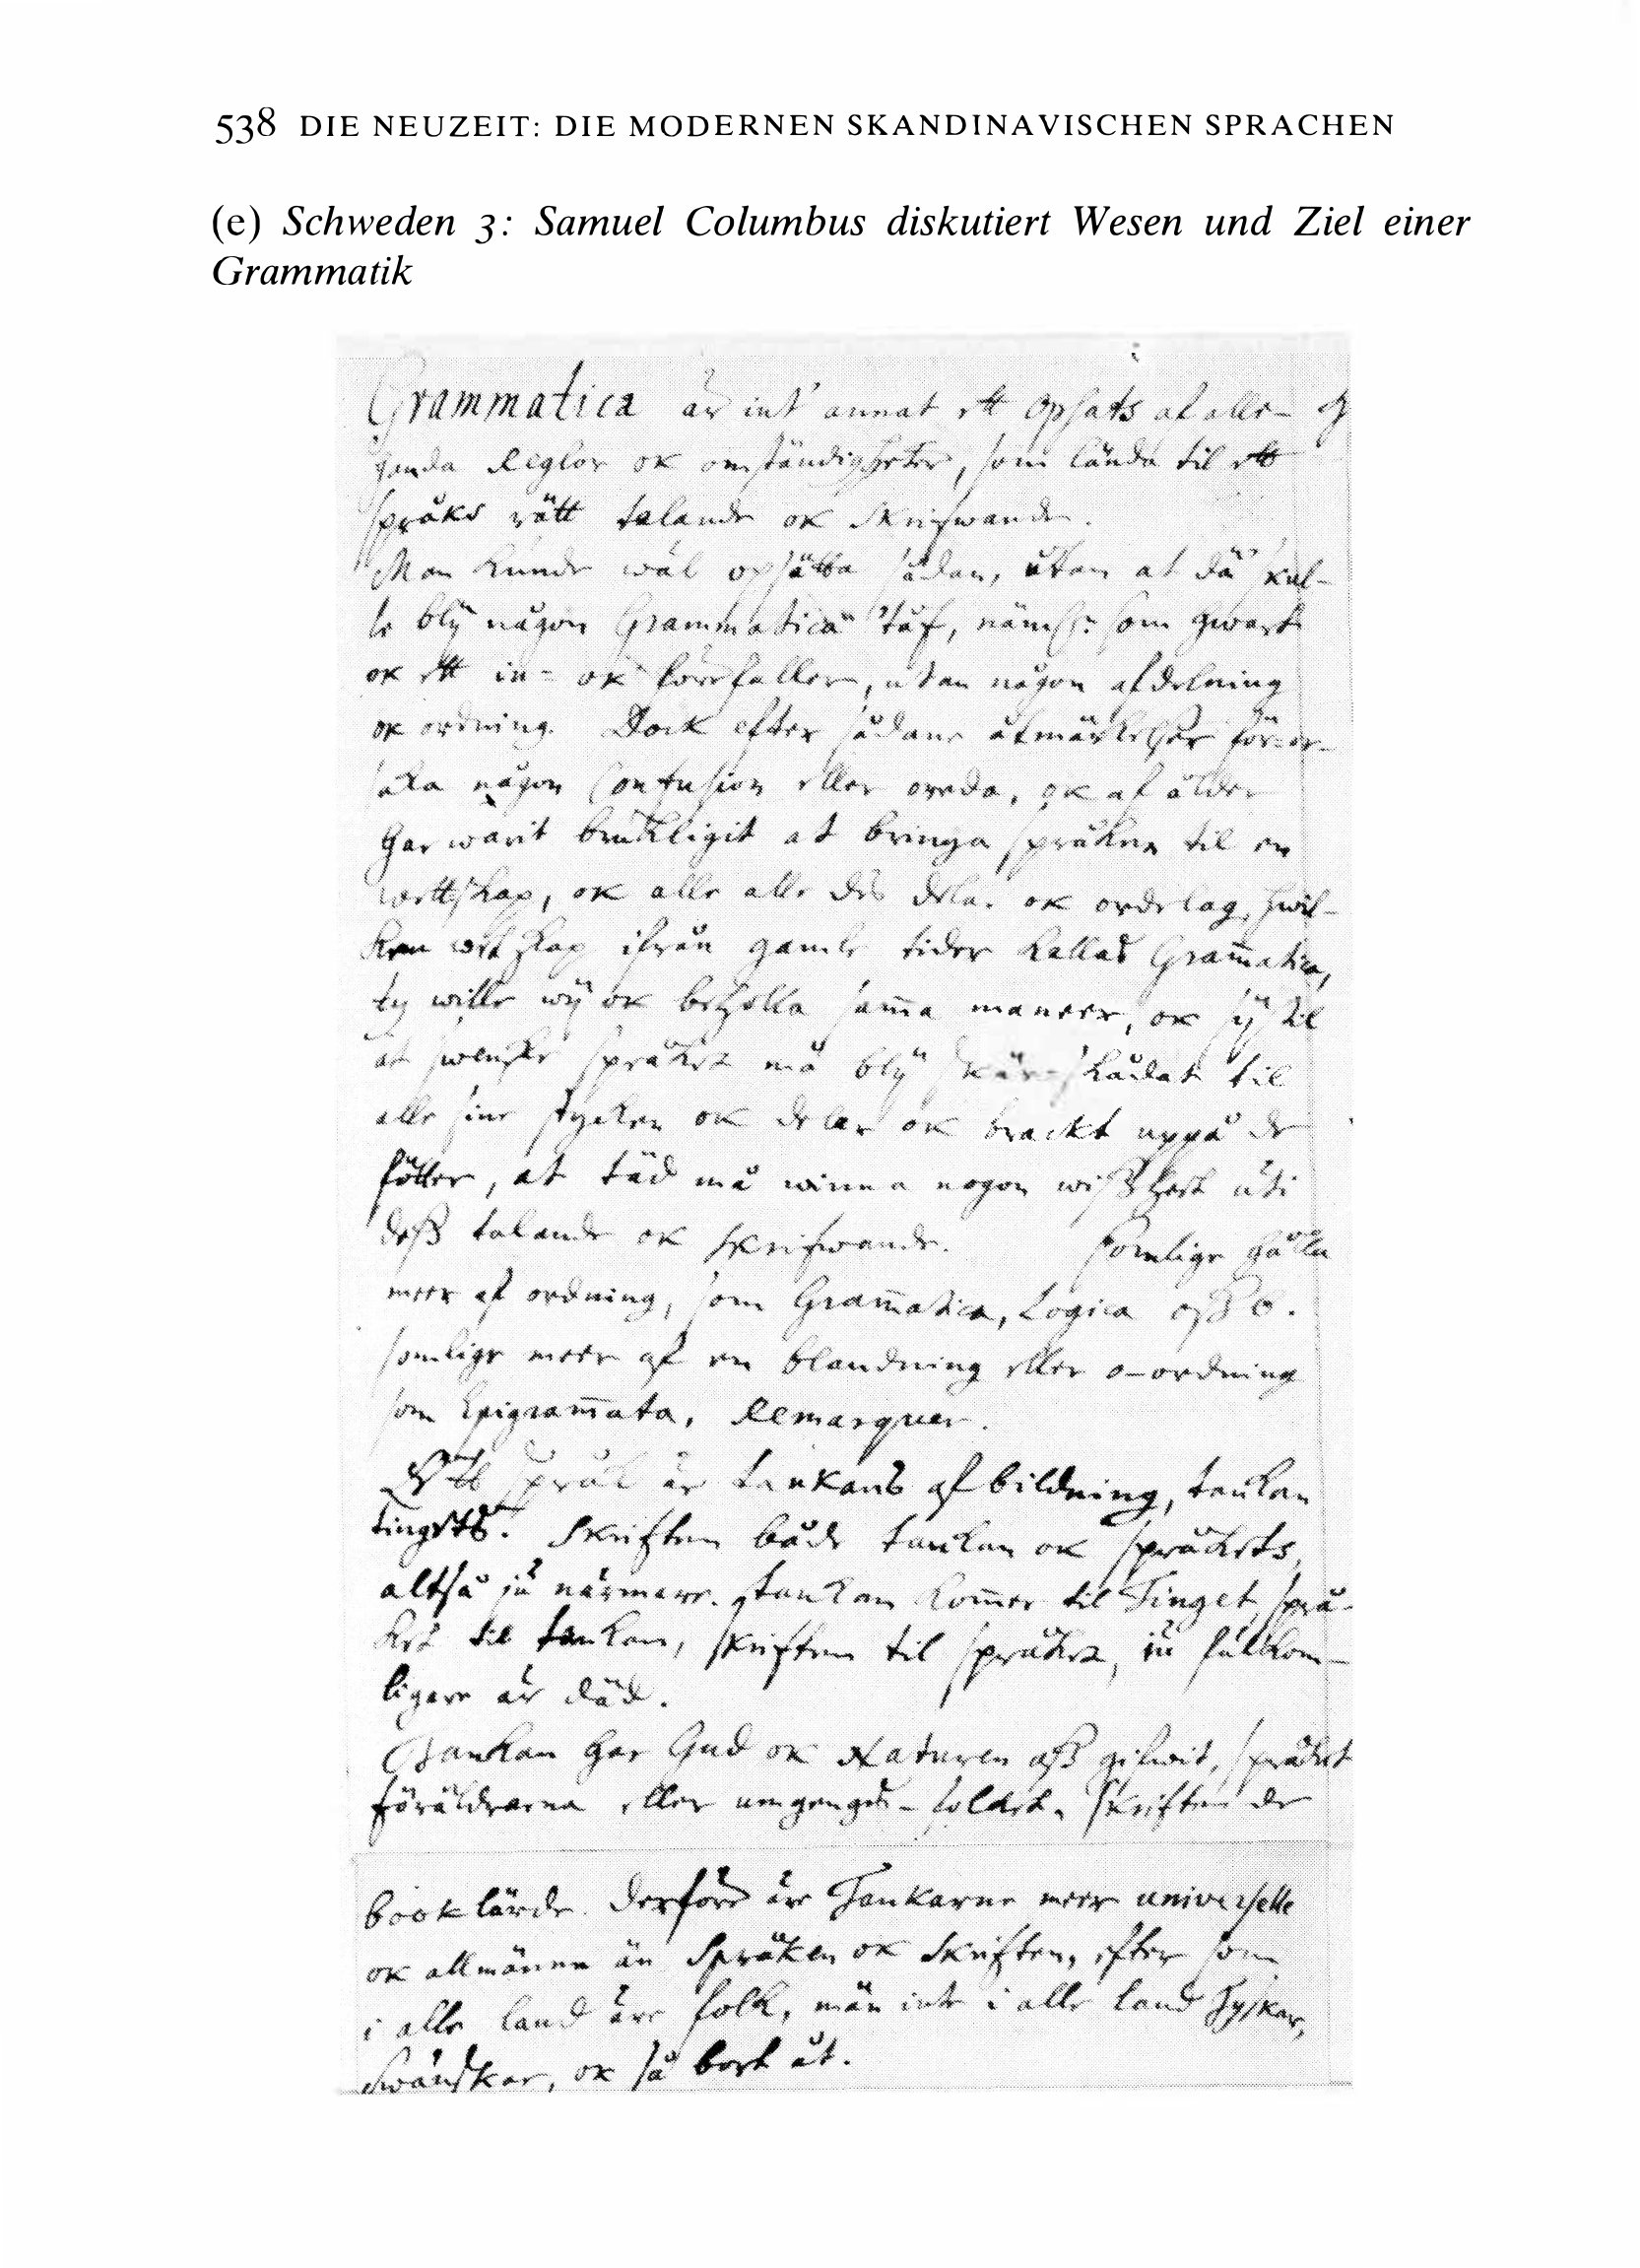 538 DIE NEUZEIT: DIE MODERNEN SKANDINAVISCHEN SPRACHEN
(e) Schweden 3: Samuel Columbus diskutiert Wesen und Ziel einer
Grammatik
Grammatica är int' annat ett opsats af alle-
handa Reglor ok omständigheter, som lända til ett
språks rätt talande ok skrifwande.
Man kunde wäl opsätta sådan, utan at dä skul-
le blij någon Grammatica 'táf, nämbl: som hwart
ok ett in- ok förefaller, utan någon afdelning
ok ordning. Dock efter sådane åtmärkelser för-or-
saka någon Confusion eller oreda, ok af ålder
har warit brukligit at bringa språken til en
wettskap, ok alle alle des delar ok ordelag, hwil-
ken wetskap ifrån gamle tider kallas Gram̄atica,
ty wille wij ok behålla sam̄a maneer, ok sij til
at swenske språket må blij skär-skådat til
alle sine stycken ok delar ok brackt uppå de
fötter, at täd må winna nogon wißhet uti
deß talande ok skrifwande. Somlige hålla
meer af ordning, som Gram̄atica, Logica
somlige meer af en blandning eller o-ordning
som Epigram̄ata, Remarquer.
Ett språk är tankans afbildning, tankan
tingets. Skriften både tankan ok språkets,
altså ju närmare tankan kom̄er til Tinget, språ-
ket til tankan, skriften til språket, ju fulkom-
ligare är däd.
Tankan har Gud ok Naturen oß gifwit, språket
föräldrarna eller umgenges-folcket, skriften de
booklärde. Derföre äre Tankarne meer universelle
ok allmänne än Språken ok Skriften, efter som
i alle land äre folk, män inte i alle land Tyskar,
Swänskar, ok så bort åt.